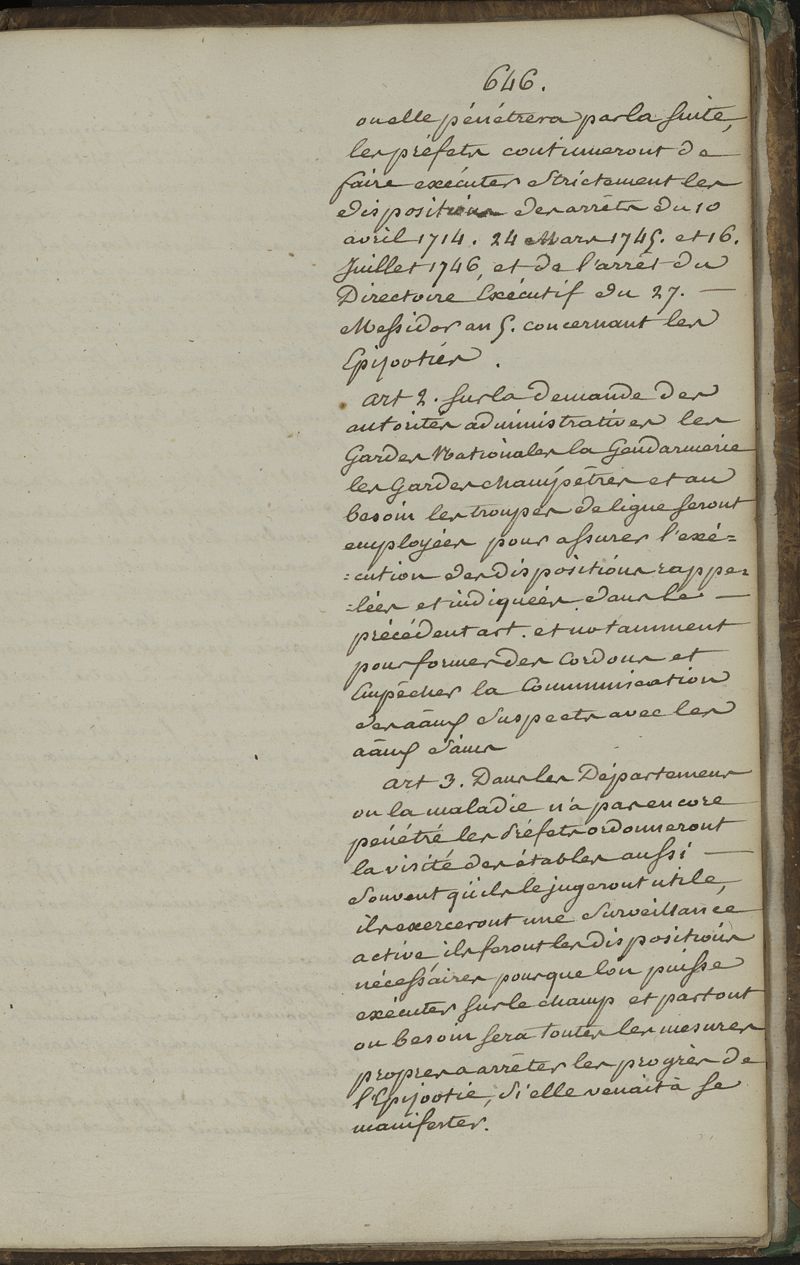 646.
ou elle pénétrera par la suite,
les préfets continueront de
faire exécuter strictement les
dispositions des arrêts du 10
avril 1714. 24 Mars 1745. et 16.
Juillet 1746, et de l'arrêt du
Directoire Exécutif du 27. —
Messidor an 5. concernant les
Epizooties.
art 2. sur la demande des
autorités administratives les
Gardes Nationales la Gendarmerie
les Gardes champêtres et au
besoin les troupes de ligne seront
employées pour assurer l'exé=
=cution des dispositions rappe=
=lées et indiquées dans le —
précédent art. et notamment
pour former des Cordons et
Empêcher la Communication
des aãux suspects avec les
aãux sains
art 3. Dans les Départemens
ou la maladie n'a pas encore
pénétré les Préfets ordonneront
la visite des étables aussi —
souvent qu'ils le jugeront utile,
ils exerceront une surveillance
active, ils feront les dispositions
nécessaires pour que lon puisse
exécuter sur le champ et partout
ou besoin sera toutes les mesures
propres a arrêter les progrès de
l'Epizootie, si elle venait à se
manifester.